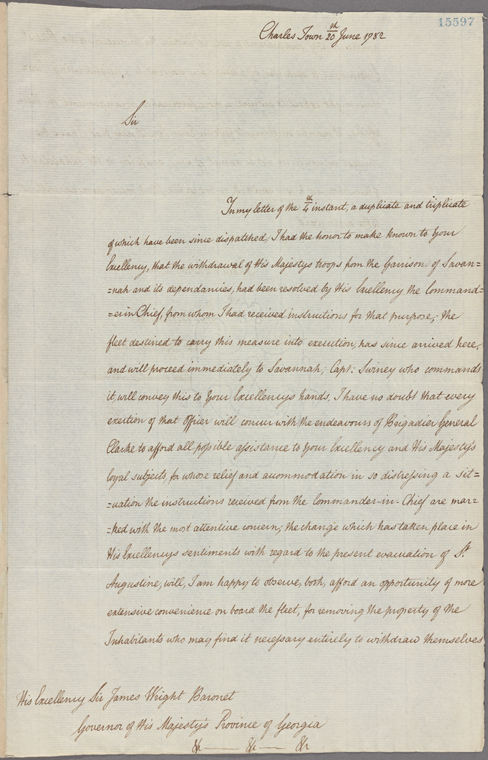 15597
Charles Town 20th June 1782
Sir
In my letter of the 4th instant, a duplicate and triplicate
of which have been since dispatched, I had the honor to make known to Your
Excellency, that the withdrawal of His Majestys troops from the Garrison of Savan=
=nah and its dependancies, had been resolved by His Excellency the Command=
=er in Chief, from whom I had received instructions for that purpose; the
fleet destined to carry this measure into execution, has since arrived here,
and will proceed immediately to Savannah; Capt: Swiney who commands
it, will convey this to Your Excellency's hands, I have no doubt that every
exertion of that Officer will concur with the endeavours of Brigadier General
Clarke to afford all possible assistance to Your Excellency and His Majesty's
loyal subjects, for whose relief and accommodation in so distressing a sit=
=uation the instructions received from the Commander-in-Chief are mar=
=ked with the most attentive concern; the change which has taken place in
His Excellencys sentiments with regard to the present evacuation of St
Augustine, will, I am happy to observe, both, afford an opportunity of more
extensive convenience on board the fleet, for removing the property of the
Inhabitants who may find it necessary entirely to withdraw themselves
His Excellency Sir James Wright Baronet
Governor of His Majesty's Province of Georgia
&c —— &c —— &c